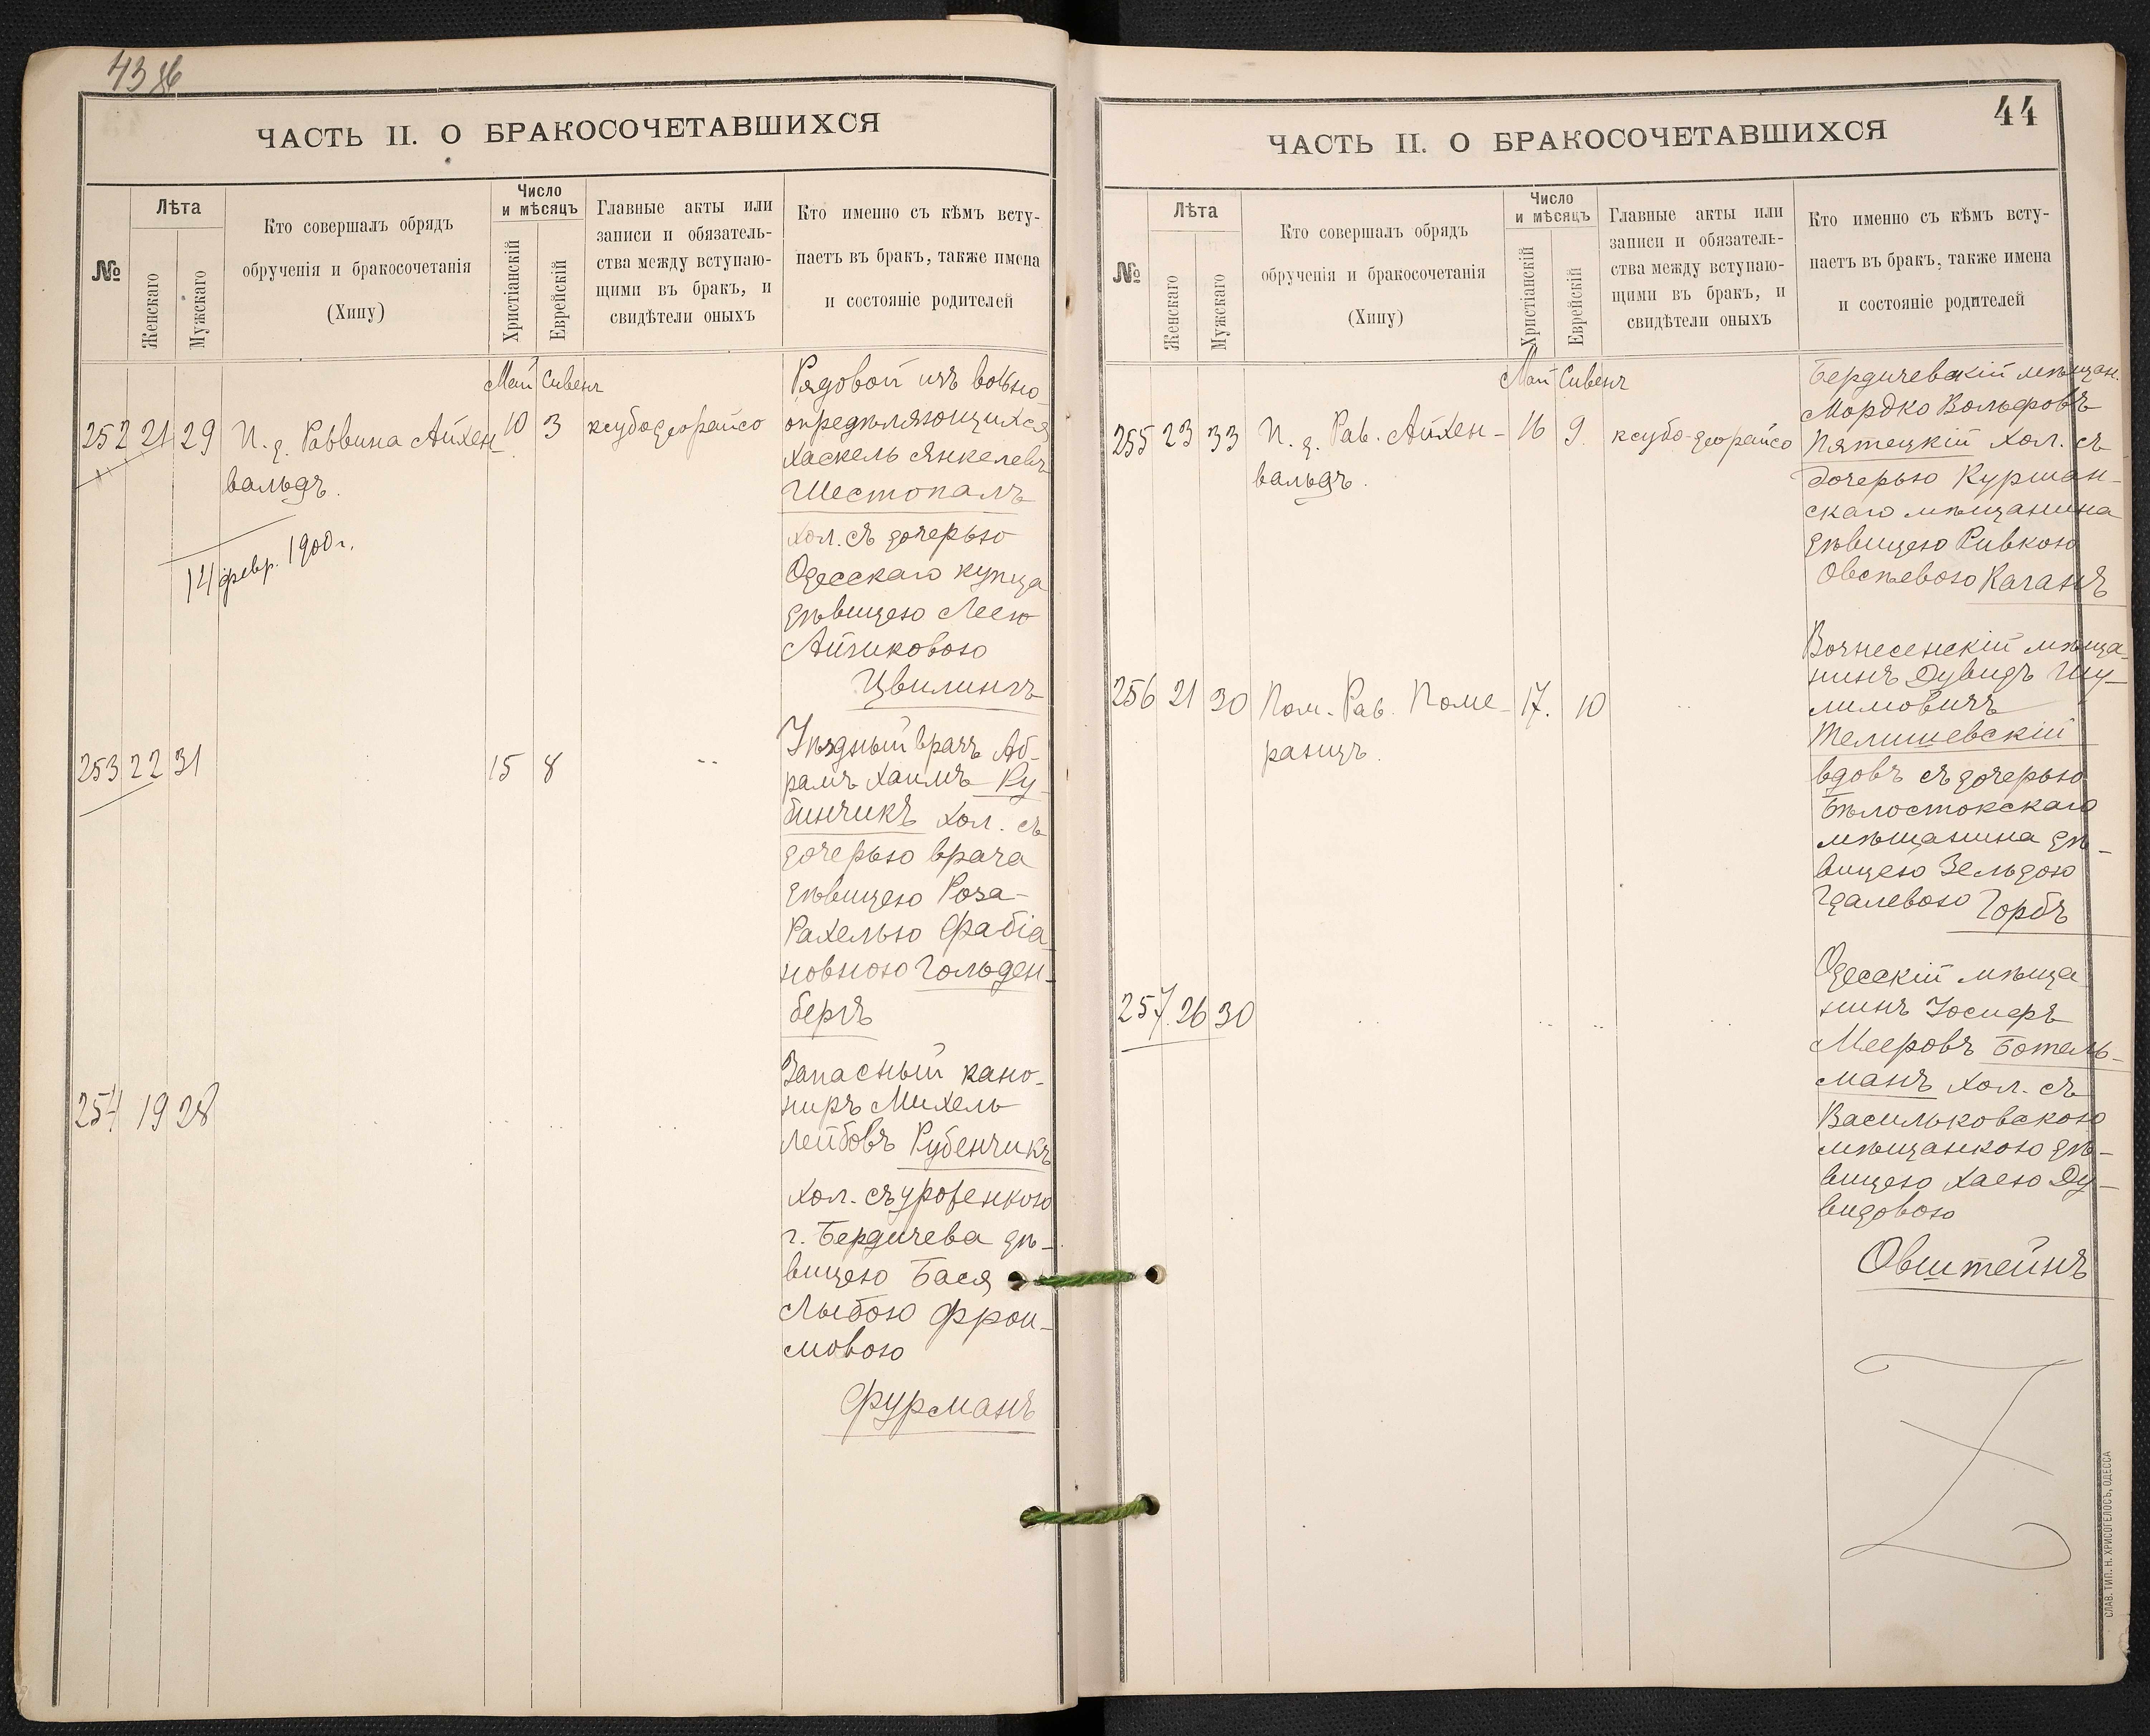 43 об
ЧАСТЬ II. О БРАКОСОЧЕТАВШИХСЯ
№
Лѣта
Женскаго
Мужскаго
Кто совершалъ обрядъ
обрученія и бракосочетанія
(Хипу)
Число
и мѣсяцъ
Христіанскій
Еврейскій
Главные акты или
записи и обязатель-
ства между вступаю-
щими въ бракъ, и
свидѣтели оныхъ
Кто именно съ кѣмъ всту-
паетъ въ бракъ, также имена
и состояніе родителей
Май Сивенъ
252 21 29 И. д. Раввина Айхен-
вальдъ.
10 3 ксубо деорайсо
14 февр. 1900 г.
Рядовой изъ вольно-
опредѣляющихся
Хаскель Янкелевъ
Шестопалъ
хол. съ дочерью
Одесскаго купца
дѣвицею Леею
Айзиковою
Цвилингъ
253 22 31 " 15 8 "
Уѣздный врачъ Аб-
рамъ Хаимъ Ру-
бинчикъ хол. съ
дочерью врача
дѣвицею Роза-
Рахелью Фабіа-
новною Гольден-
бергъ
254 19 28 " " " "
Запасный кано-
ниръ Михель
Лейбовъ Рубенчикъ
хол. съ уроженкою
г. Бердичева дѣ-
вицею Бася
Лыбою Фрои-
мовою
Фурманъ
44
ЧАСТЬ II. О БРАКОСОЧЕТАВШИХСЯ
№
Лѣта
Женскаго
Мужскаго
Кто совершалъ обрядъ
обрученія и бракосочетанія
(Хипу)
Число
и мѣсяцъ
Христіанскій
Еврейскій
Главные акты или
записи и обязатель-
ства между вступаю-
щими въ бракъ, и
свидѣтели оныхъ
Кто именно съ кѣмъ всту-
паетъ въ бракъ, также имена
и состояніе родителей
Май Сивенъ
255 23 33 И. д. Рав. Айхен-
вальдъ.
16 9. ксубо-деорайсо
Бердичевскій мѣщан.
Мордко Вольфовъ
Пятецкій хол. съ
дочерью Куршан-
скаго мѣщанина
дѣвицею Ривкою
Овсѣевою Каганъ
256 21 30 Пом. Рав. Поме-
ранцъ.
17. 10 "
Вознесенскій мѣща-
нинъ Дувидъ Шу-
лимовичъ
Телишевскій
вдовъ съ дочерью
Бѣлостокскаго
мѣщанина дѣ-
вицею Зельдою
Гдалевою Горбъ
257. 26 30 " " " "
Одесскій мѣща-
нинъ Іосифъ
Мееровъ Ботель-
манъ хол. съ
Васильковскою
мѣщанкою дѣ-
вицею Хаею Ду-
видовою
Овштейнъ
СЛАВ. ТИП. Н. ХРИСОГЕЛОСЪ, ОДЕССА